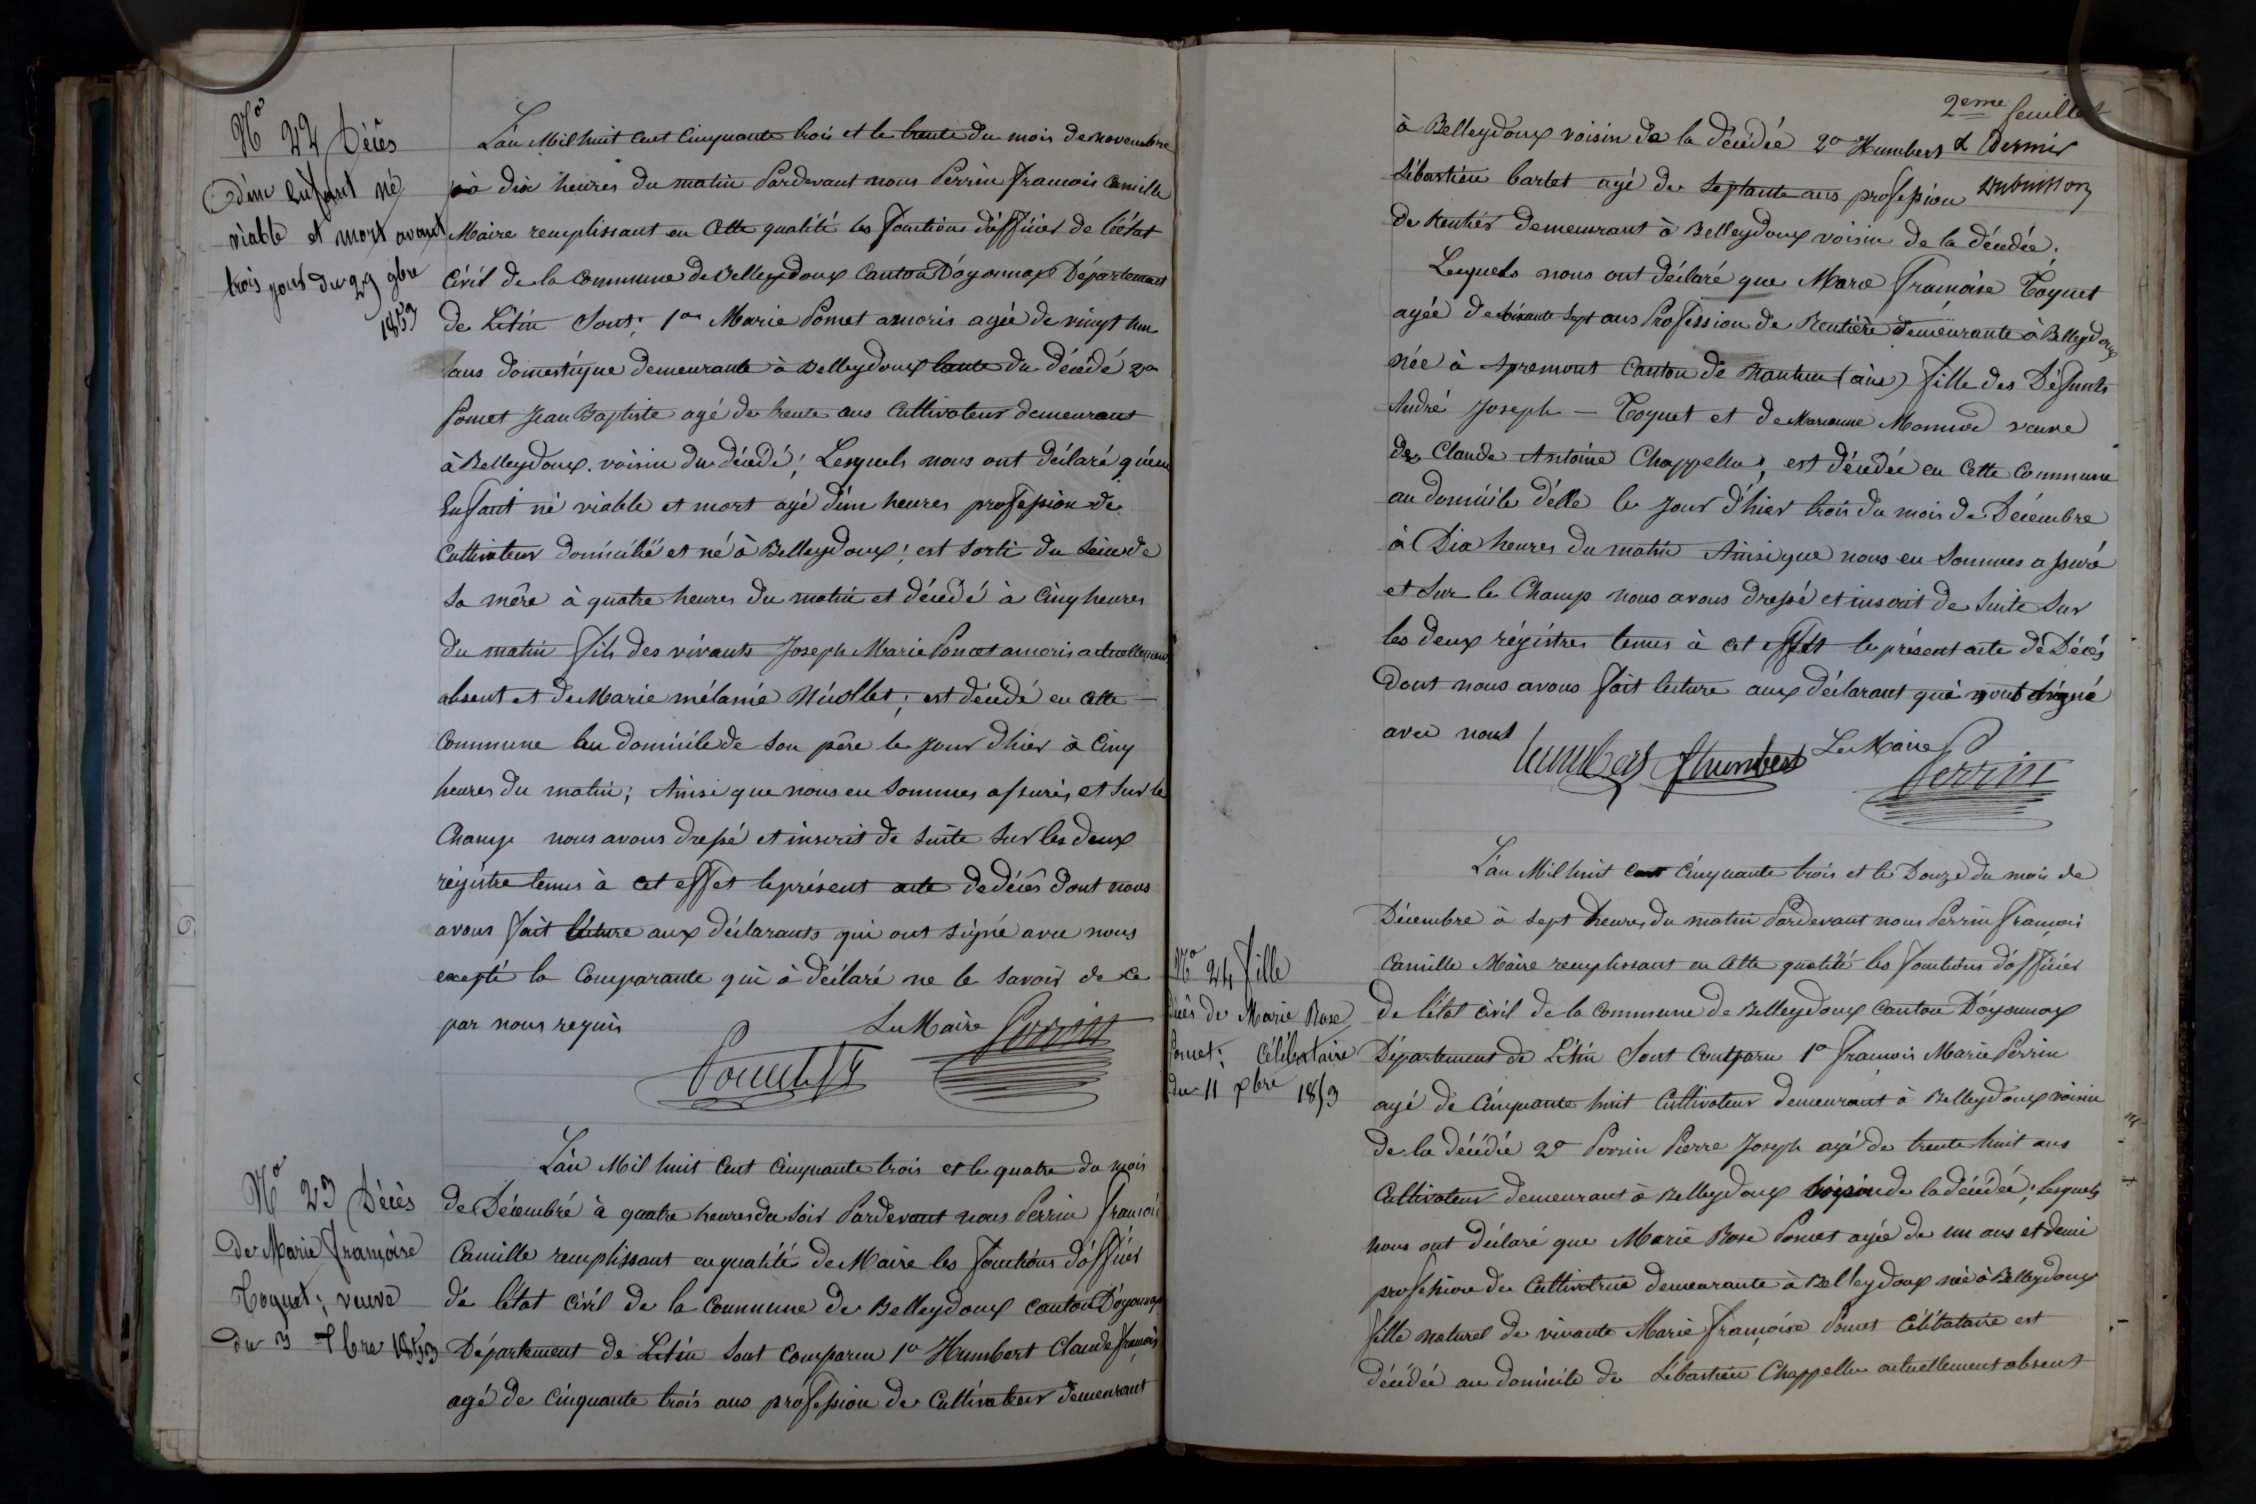 N° 22 Décès
d'un enfant né
viable et mort avant
trois jours du 29 9bre
1853
L'an Mil huit cent cinquante trois et le trente du mois de novembre
à dix heures du matin Pardevant nous Perrin françois Camille
Maire remplissant en Cette qualité les fonctions d'officier de l'état
Civil de la Commune de Belleydoux Canton D'oyonnax Département
de L'Ain Sont: 1° Marie Poncet amoris agée de vingt un
ans domestique demeurante à Belleydoux tante du décédé 2°
Poncet Jean Baptiste agé de trente ans Cultivateur demeurant
à Belleydoux. voisin du décédé; Lesquels nous ont déclaré qu'un
Enfant né viable et mort agé d'un heures profession de
Cultivateur domicilié et né à Belleydoux; est sorti du sein de
sa mère à quatre heures du matin et décédé à Cinq heures
du matin fils des vivants Joseph Marie Poncet amoris actuellement
absent et de Marie mélanie Nicollet; est décédé en cette
Commune au domicile de son père le jour d'hier à Cinq
heures du matin; Ainsi que nous en sommes assurés, et sur le
Champ nous avons dressé et inscrit de suite sur les deux
régistre tenus à cet effet le présent acte de décès dont nous
avons fait lecture aux déclarants qui ont signé avec nous
excepté la Comparante qui à déclaré ne le savoir de ce
par nous requis
Le Maire Perrin
N° 23 Décès
de Marie françoise
Toquet; veuve
du 3 Xbre 1853
L'an Mil huit Cent cinquante trois et le quatre du mois
de Décembre à quatre heures du soir Pardevant nous Perrin françois
Camille remplissant en qualité de Maire les fonctions d'officier
de l'état Civil de la Commune de Belleydoux canton D'oyonnax
Département de L'Ain sont comparu 1° Humbert Claude françois
agé de cinquante trois ans profession de Cultivateur demeurant
2eme feuillet
& Dernier
Dubuisson
à Belleydoux voisin de la décédée 2° Humbert
Sébastien Barlet agé de septante ans profession
de Rentier demeurant à Belleydoux voisin de la décédée.
Lesquels nous ont déclaré que Marie françoise Toquet
agée de soixante Sept ans Profession de Rentière demeurante à Belleydoux
née à Apremont Canton de Nantua (ain) fille des Défunts
André Joseph Toquet et de Marianne Monnod veuve
de Claude Antoine Chappellu; est décédée en Cette Commune
au domicile d'elle le jour d'hier trois du mois de Décembre
à Dix heures du matin Ainsi que nous en sommes assuré
et sur le Champ nous avons dressé et inscrit de suite sur
les deux régistres tenus à cet effet le présent acte de Décès
Dont nous avons fait lecture aux déclarant qui ont signé
avec nous
humbert Le Maire
Perrin
N° 24 fille
décès de Marie Rose
Poncet; Célibataire
du 11 xbre 1853
L'an Mil huit cent Cinquante trois et le Douze du mois de
Décembre à sept heures du matin Pardevant nous Perrin françois
Camille Maire remplissant en Cette qualité les fonctions d'officier
de l'état Civil de la Commune de Belleydoux Canton D'oyonnax
Département de L'Ain Sont Comparu 1° françois Marie Perrin
agé de Cinquante huit Cultivateur demeurant à Belleydoux voisin
de la décédée 2° Perrin Pierre Joseph agé de trente huit ans
Cultivateur demeurant à Belleydoux voisin de la décédée; Lesquels
nous ont déclaré que Marie Rose Poncet agée de un ans et demi
profession de Cultivatrice demeurante à Belleydoux née à Belleydoux
fille naturel de vivante Marie françoise Poncet Célibataire est
décédée au domicile de Sébastien Chappellu actuellement absent